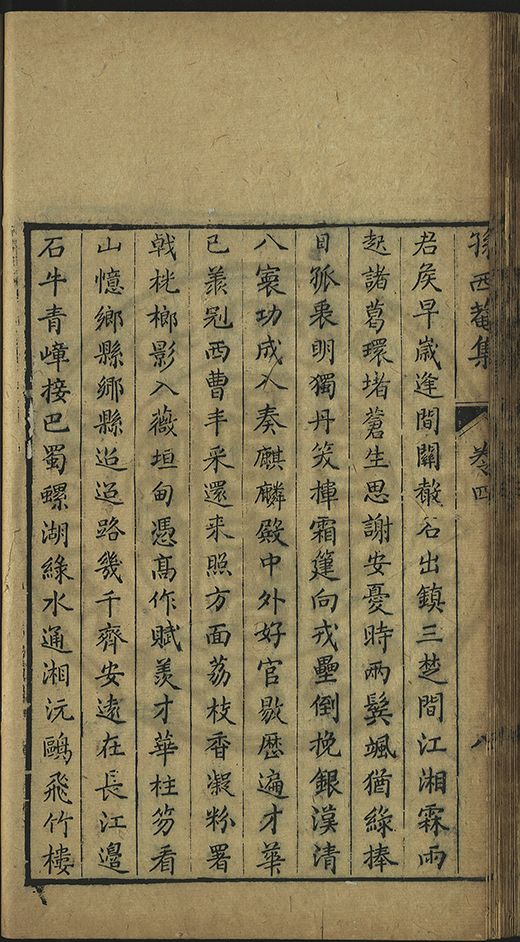 孫西菴集 卷四 八
君侯早歲逢間關名出鎮三楚間江湘霖雨
起諸葛環堵蒼生思謝安憂時兩鬂颯猶綠捧
日孤衷明獨丹筴揮霜篷向戎壘倒挽銀漢清
八寰功成入奏麒麟殿中外好官敭歷遍才華
已羨冠西曹丰采還来照方面荔枝香凝粉署
戟桄榔影入薇垣甸憑高作賦羨才華柱笏看
山憶鄉縣鄉縣迢迢路幾千齊安遠在長江邊
石牛青嶂接巴蜀螺湖綠水通湘沅鷗飛竹樓